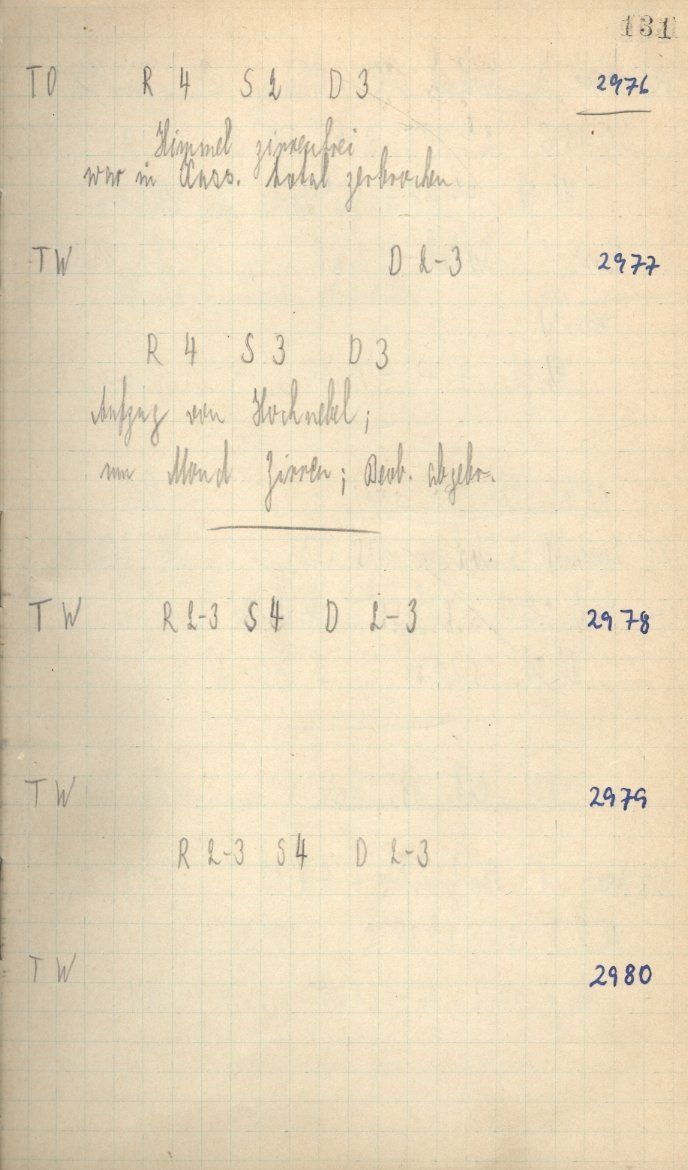 131
TO R 4 S 2 D 3 2976
Himmel zirrenfrei
war in Cass. total zerbrochen
TW D 2-3 2977
R 4 S 3 D 3
Aufzug von Hochnebel;
um Mond Zirren; Beob. abgebr.
TW R 2-3 S 4 D 2-3 2978
TW 2979
R 2-3 S 4 D 2-3
TW 2980